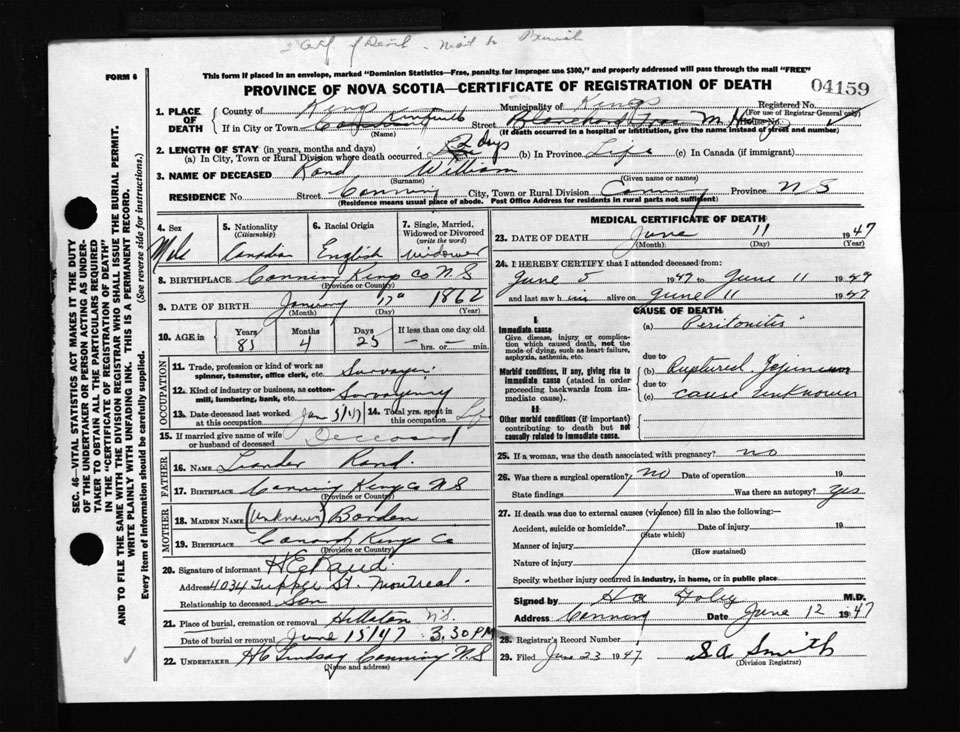 FORM 6
This form if placed in an envelope, marked "Dominion Statistics—Free, penalty for improper use $300," and properly addressed will pass through the mail "FREE"
PROVINCE OF NOVA SCOTIA—CERTIFICATE OF REGISTRATION OF DEATH
04159
1. PLACE OF DEATH
County of Kings Municipality of Kings Registered No.
(For use of Registrar-General only)
If in City or Town Kentville Street Blanchard House No.
(Name) (If death occurred in a hospital or institution, give the name instead of street and number)
2. LENGTH OF STAY (in years, months and days)
(a) In City, Town or Rural Division where death occurred days (b) In Province Life (c) In Canada (if immigrant)
3. NAME OF DECEASED Rand William
(Surname) (Given name or names)
RESIDENCE No. Street Canning City, Town or Rural Division Canning Province N S
(Residence means usual place of abode. Post Office Address for residents in rural parts not sufficient)
4. Sex Male
5. Nationality (Citizenship) Canadian
6. Racial Origin English
7. Single, Married, Widowed or Divorced (write the word) Widower
8. BIRTHPLACE Canning Kings Co N S
(Province or Country)
9. DATE OF BIRTH January 17 1862
(Month) (Day) (Year)
10. AGE IN Years 85 Months 4 Days 25 If less than one day old
hrs. or min.
OCCUPATION
11. Trade, profession or kind of work as spinner, teamster, office clerk, etc. Surveyor
12. Kind of industry or business, as cotton-mill, lumbering, bank, etc. Surveying
13. Date deceased last worked at this occupation Jan 5/47 14. Total yrs. spent in this occupation
15. If married give name of wife or husband of deceased Deceased
FATHER
16. NAME Leander Rand
17. BIRTHPLACE Canning Kings Co N S
(Province or Country)
MOTHER
18. MAIDEN NAME (Unknown) Borden
19. BIRTHPLACE Canard Kings Co
(Province or Country)
20. Signature of informant H E Rand
Address 4034 Tupper St. Montreal
Relationship to deceased Son
21. Place of burial, cremation or removal Hillaton N.S.
Date of burial or removal June 15/47 3.30 PM
22. UNDERTAKER H C Lindsay Canning N S
(Name and address)
MEDICAL CERTIFICATE OF DEATH
23. DATE OF DEATH June 11 1947
(Month) (Day) (Year)
24. I HEREBY CERTIFY that I attended deceased from:
June 5 1947 to June 11 1947
and last saw him alive on June 11 1947
CAUSE OF DEATH
I.
Immediate cause
Give disease, injury or complication which caused death, not the mode of dying, such as heart-failure, asphyxia, asthenia, etc.
(a) Peritonitis
due to
Morbid conditions, if any, giving rise to immediate cause (stated in order proceeding backwards from immediate cause).
(b) Ruptured Jejunum
due to
(c) cause unknown
II
Other morbid conditions (if important) contributing to death but not causally related to immediate cause.
25. If a woman, was the death associated with pregnancy? no
26. Was there a surgical operation? no Date of operation 19
State findings Was there an autopsy? Yes
27. If death was due to external causes (violence) fill in also the following:—
Accident, suicide or homicide? Date of injury 19
(State which)
Manner of injury
(How sustained)
Nature of injury
Specify whether injury occurred in industry, in home, or in public place
Signed by H a Foley M.D.
Address Canning Date June 12 1947
28. Registrar's Record Number
29. Filed June 23 1947 S a Smith
(Division Registrar)
SEC. 46—VITAL STATISTICS ACT MAKES IT THE DUTY
OF THE UNDERTAKER OR PERSON ACTING AS UNDER-
TAKER TO OBTAIN ALL THE PARTICULARS REQUIRED
IN THE "CERTIFICATE OF REGISTRATION OF DEATH"
AND TO FILE THE SAME WITH THE DIVISION REGISTRAR WHO SHALL ISSUE THE BURIAL PERMIT.
WRITE PLAINLY WITH UNFADING INK. THIS IS A PERMANENT RECORD.
Every item of information should be carefully supplied. (See reverse side for instructions.)